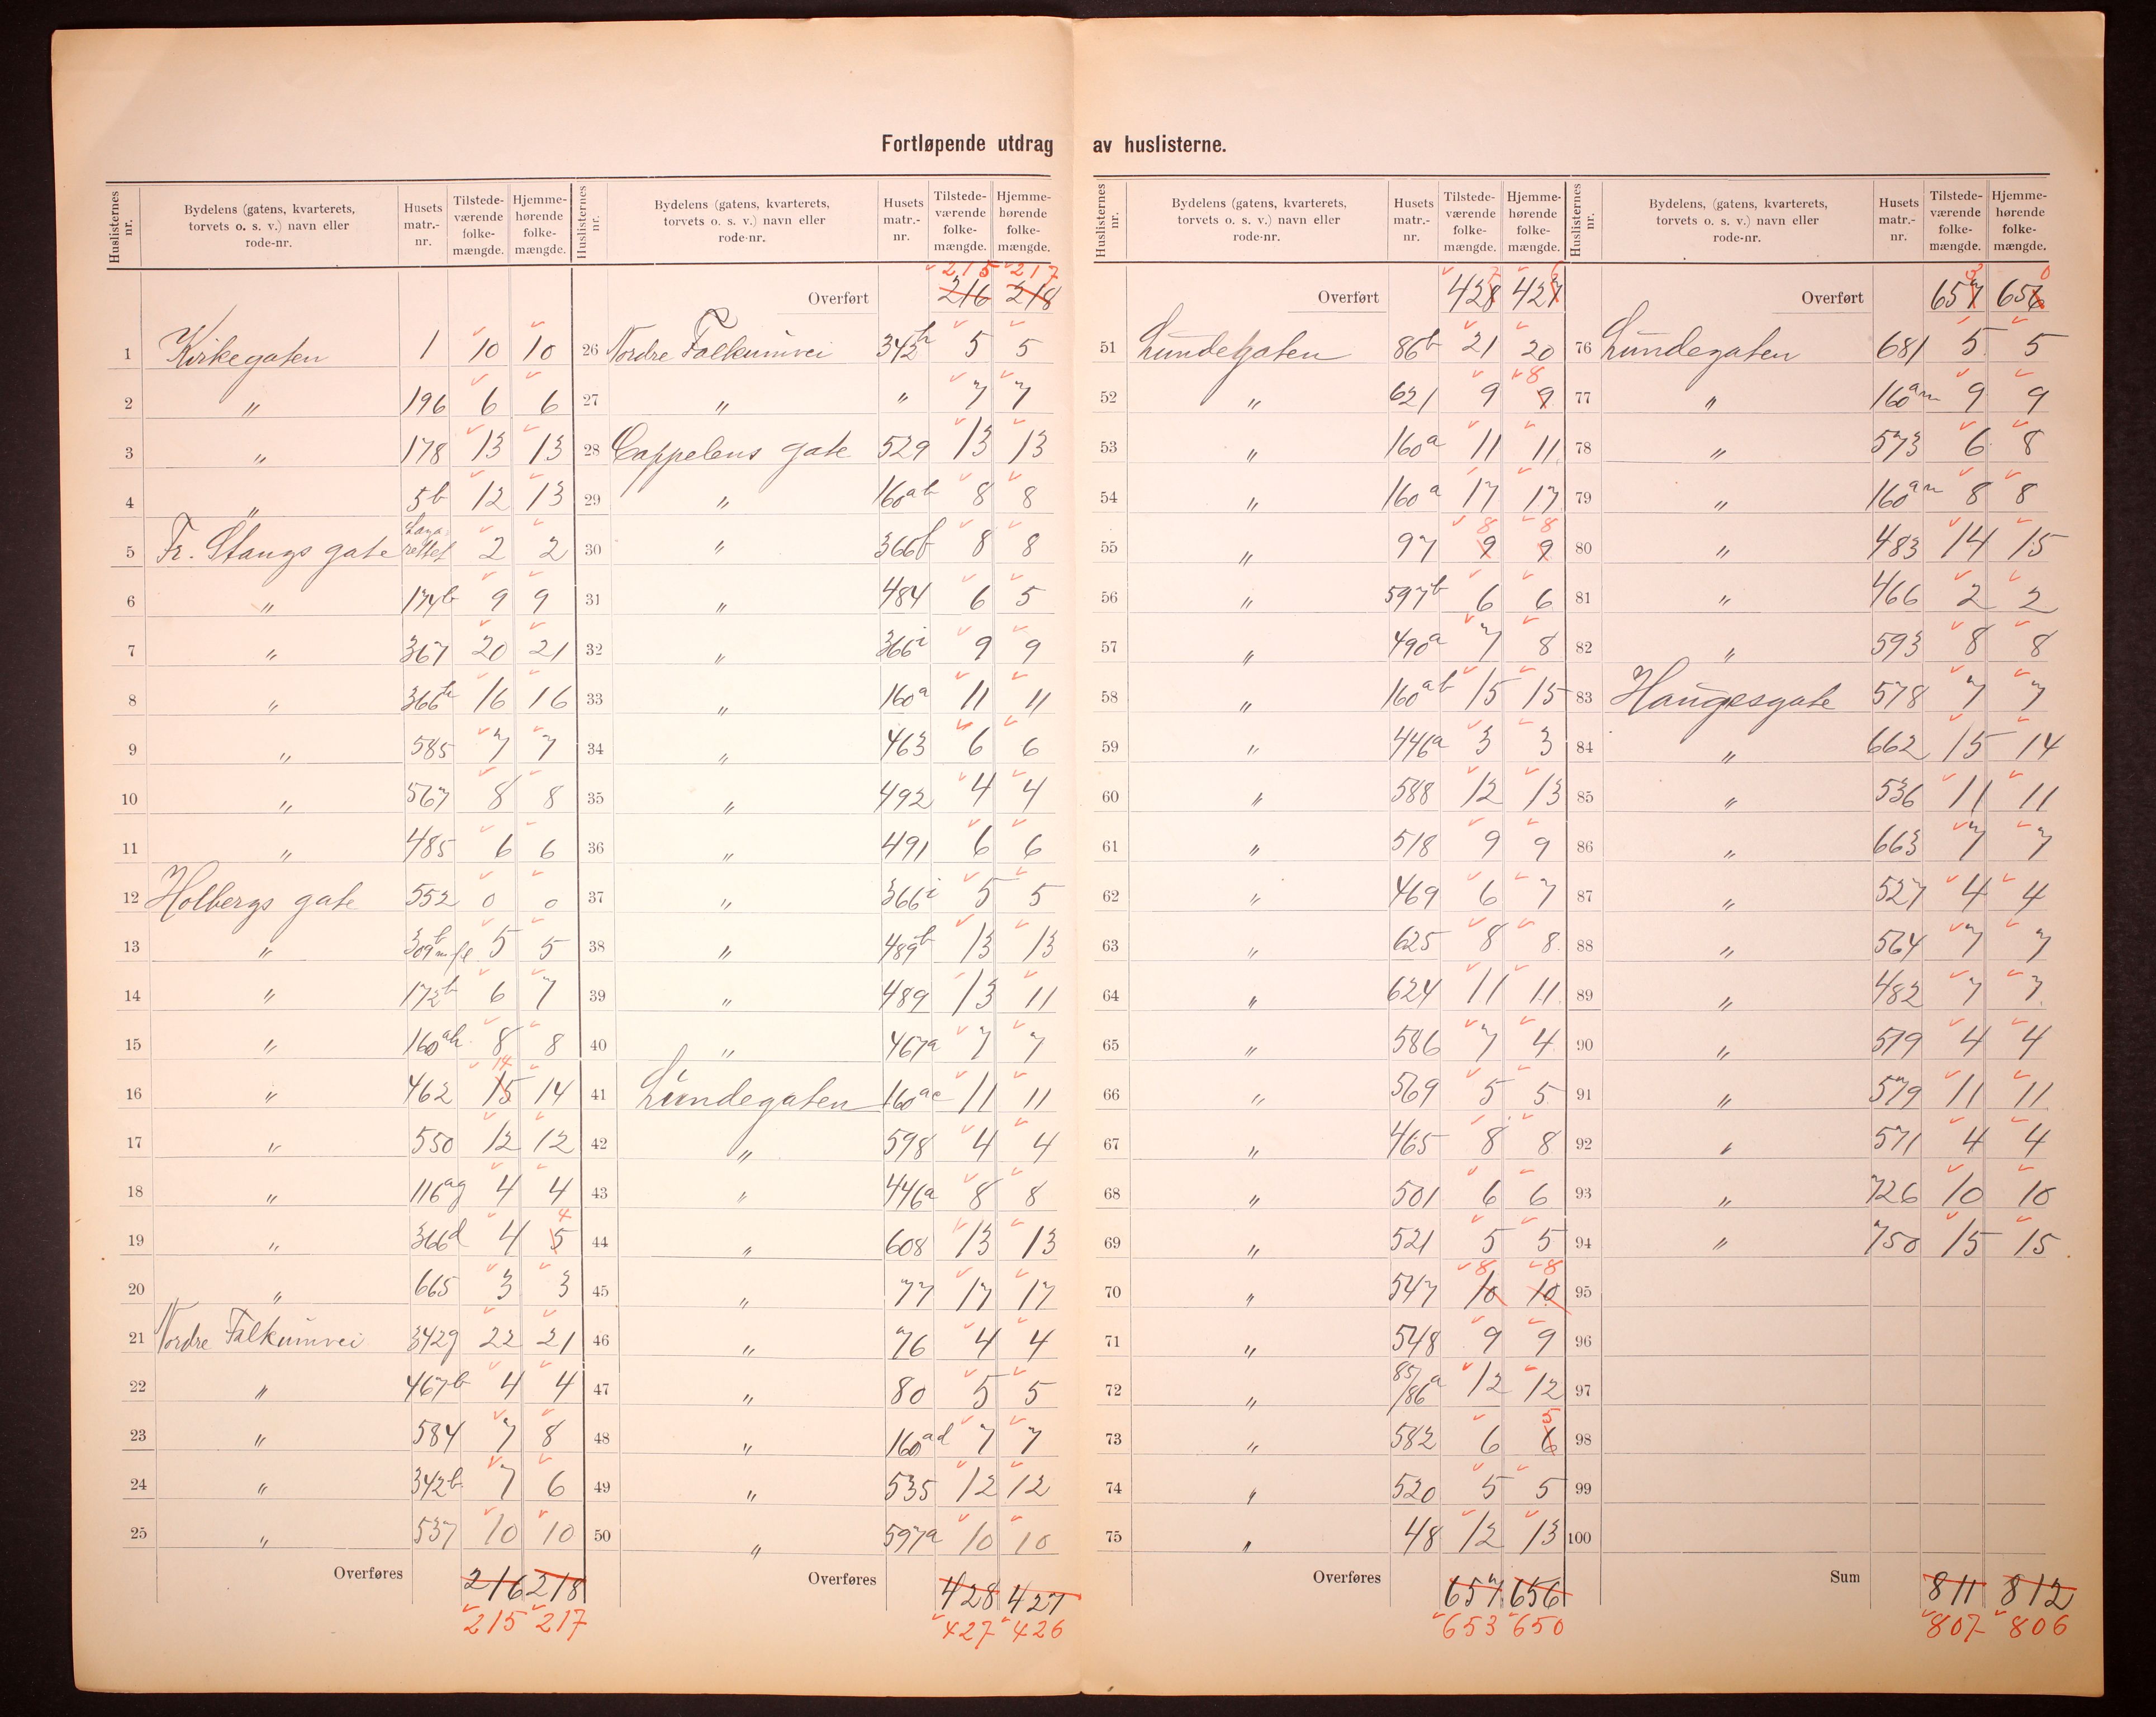 Fortløpende utdrag av huslisterne.
Huslisternes nr. | Bydelens (gatens, kvarterets, torvets o. s. v.) navn eller rode-nr. | Husets matr.-nr. | Tilstede-værende folke-mængde. | Hjemme-hørende folke-mængde.
1 Kirkegaten 1 10 10
2 " 196 6 6
3 " 178 13 13
4 " 5b 12 13
5 Fr. Stangs gate Lazarettet 2 2
6 " 174b 9 9
7 " 367 20 21
8 " 366h 16 16
9 " 585 7 7
10 " 567 8 8
11 " 485 6 6
12 Holbergs gate 552 0 0
13 " 309b m fl 5 5
14 " 172b 6 7
15 " 160ah 8 8
16 " 462 15 14 14
17 " 550 12 12
18 " 116ag 4 4
19 " 366d 4 5 4
20 " 665 3 3
21 Nordre Falkumvei 342g 22 21
22 " 467b 4 4
23 " 584 7 8
24 " 342b 7 6
25 " 537 10 10
Overføres 216 218
215 217
Huslisternes nr. | Bydelens (gatens, kvarterets, torvets o. s. v.) navn eller rode-nr. | Husets matr.-nr. | Tilstede-værende folke-mængde. | Hjemme-hørende folke-mængde.
215 217
Overført 216 218
26 Nordre Falkumvei 342h 5 5
27 " " 7 7
28 Cappelens gate 529 13 13
29 " 160ab 8 8
30 " 366f 8 8
31 " 484 6 5
32 " 366i 9 9
33 " 160a 11 11
34 " 463 6 6
35 " 492 4 4
36 " 491 6 6
37 " 366i 5 5
38 " 489b 13 13
39 " 489 13 11
40 " 467a 7 7
41 Lundegaten 160ac 11 11
42 " 598 4 4
43 " 446a 8 8
44 " 608 13 13
45 " 77 17 17
46 " 76 4 4
47 " 80 5 5
48 " 160ad 7 7
49 " 535 12 12
50 " 597a 10 10
Overføres 428 427
427 426
Huslisternes nr. | Bydelens (gatens, kvarterets, torvets o. s. v.) navn eller rode-nr. | Husets matr.-nr. | Tilstede-værende folke-mængde. | Hjemme-hørende folke-mængde.
7 6
Overført 428 427
51 Lundegaten 86b 21 20
52 " 621 9 9 8
53 " 160a 11 11
54 " 160a 17 17
55 " 97 9 8 9 8
56 " 597b 6 6
57 " 490a 7 8
58 " 160ab 15 15
59 " 446a 3 3
60 " 588 12 13
61 " 518 9 9
62 " 469 6 7
63 " 625 8 8
64 " 624 11 11
65 " 586 7 4
66 " 569 5 5
67 " 465 8 8
68 " 501 6 6
69 " 521 5 5
70 " 547 10 8 10 8
71 " 548 9 9
72 " 85/86a 12 12
73 " 582 6 6 5
74 " 520 5 5
75 " 48 12 13
Overføres 657 656
653 650
Huslisternes nr. | Bydelens, (gatens, kvarterets, torvets o. s. v.) navn eller rode-nr. | Husets matr.-nr. | Tilstede-værende folke-mængde. | Hjemme-hørende folke-mængde.
3 0
Overført 657 656
76 Lundegaten 681 5 5
77 " 160am 9 9
78 " 573 6 8
79 " 160am 8 8
80 " 483 14 15
81 " 466 2 2
82 " 593 8 8
83 Haugesgate 578 7 7
84 " 662 15 14
85 " 536 11 11
86 " 663 7 7
87 " 527 4 4
88 " 564 7 7
89 " 482 7 7
90 " 519 4 4
91 " 579 11 11
92 " 571 4 4
93 " 726 10 10
94 " 750 15 15
95
96
97
98
99
100
Sum 811 812
807 806